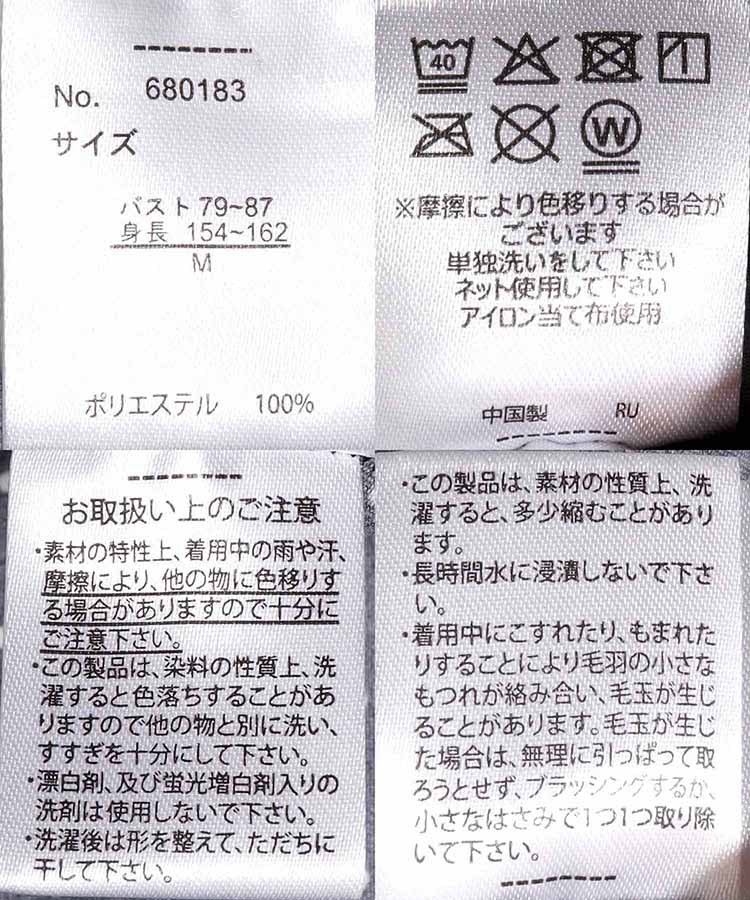 No. 680183
サイズ
バスト 79~87
身長 154~162
M
ポリエステル 100%
40
W
※摩擦により色移りする場合が
ございます
単独洗いをして下さい
ネット使用して下さい
アイロン当て布使用
中国製 RU
お取扱い上のご注意
・素材の特性上、着用中の雨や汗、
摩擦により、他の物に色移りす
る場合がありますので十分に
ご注意下さい。
・この製品は、染料の性質上、洗
濯すると色落ちすることがあ
りますので他の物と別に洗い、
すすぎを十分にして下さい。
・漂白剤、及び蛍光増白剤入りの
洗剤は使用しないで下さい。
・洗濯後は形を整えて、ただちに
干して下さい。
・この製品は、素材の性質上、洗
濯すると、多少縮むことがあり
ます。
・長時間水に浸漬しないで下さ
い。
・着用中にこすれたり、もまれた
りすることにより毛羽の小さな
もつれが絡み合い、毛玉が生じ
ることがあります。毛玉が生じ
た場合は、無理に引っぱって取
ろうとせず、ブラッシングするか、
小さなはさみで1つ1つ取り除
いて下さい。